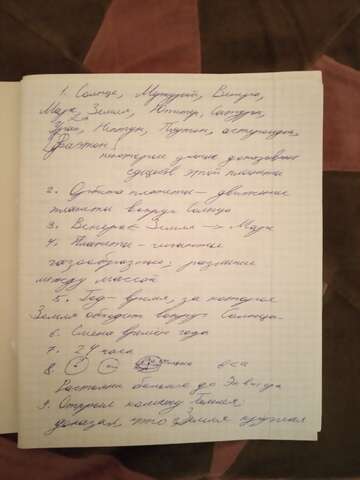 1. Солнце, Меркурий, Венера,
Марс, Земля, Юпитер, Сатурн,
Уран, Нептун, Плутон, астероиды,
(Фаэтон)
некоторые ученые доказывают
этой планеты
2. Орбита планеты – движение
планеты вокруг Солнца
3. Венера ← Земля → Марс
4. Планеты – гиганты
газообразные; различие
между массой
5. Год – время, за которое
Земля обходит вокруг Солнца
6. Смена времен года
7. 24 часа
8.
Растояни больше до Звезда
9. Открыл комету Галлея;
доказал, что Земля круглая